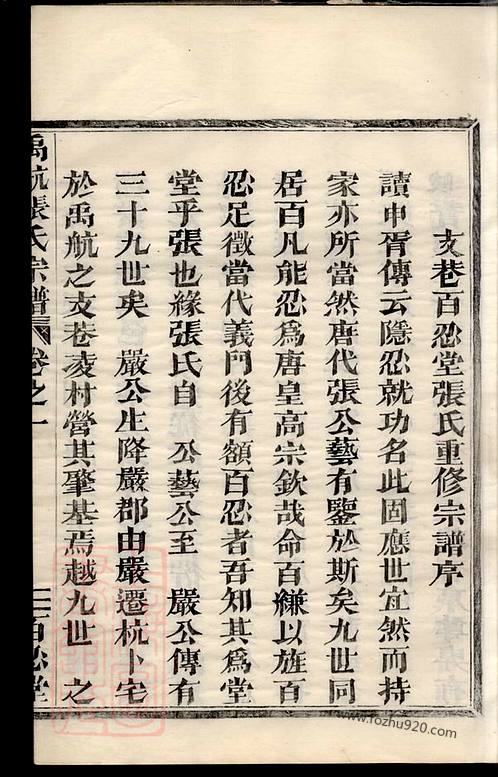 支巷百忍堂張氏重修宗譜序
讀申胥傳云隱忍就功名此固應世宜然而持
家亦所當然唐代張公藝有鑒於斯矣九世同
居百凡能忍爲唐皇高宗欽哉命百縑以旌百
忍足徵當代義門後有額百忍者吾知其爲堂
堂乎張也緣張氏自 公藝公至 嚴公傳有
三十九世矣 嚴公生降嚴郡由嚴遷杭卜宅
於禹航之支巷凌村營其肇基焉越九世 之
禹航張氏宗譜 卷之一 二 百忍堂
www.fozhu920.com